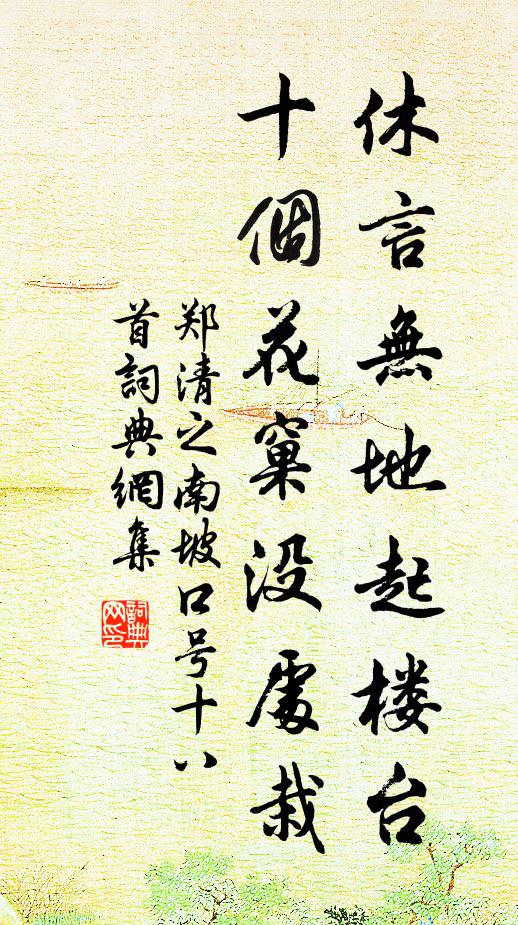 休言無地起楼台
十個花窠没處栽
郑清之南坡口号十八
首詞典網集
詞典网印